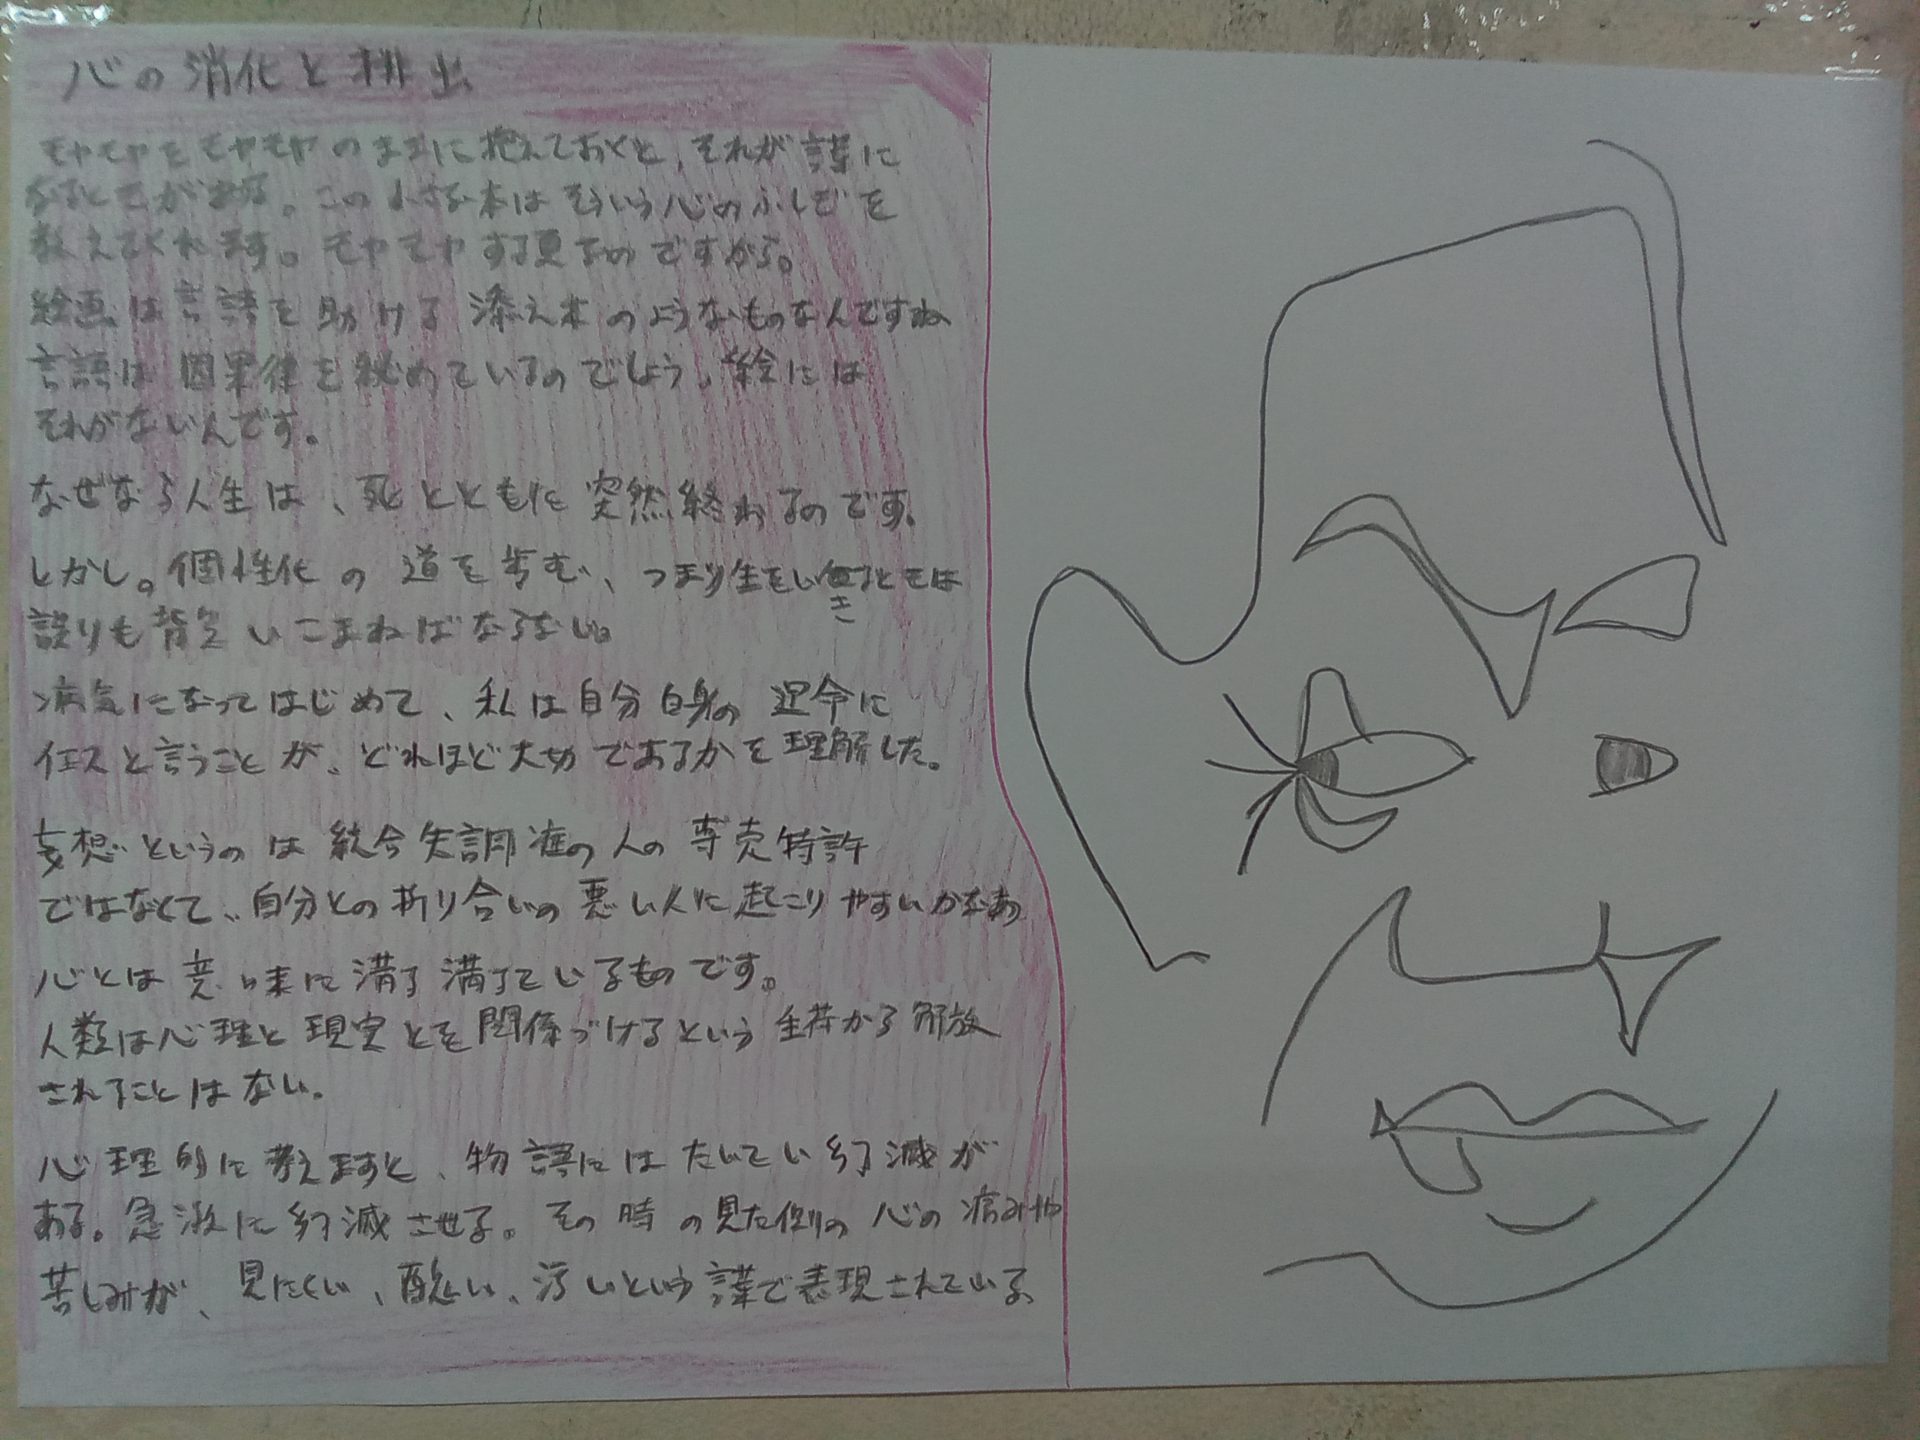 心の消化と排出
モヤモヤをモヤモヤのままに抱えておくと、それが言葉に
なってが出る。この小さな本はそういう心のふしぎを
教えてくれます。モヤモヤするのですから。
絵画は言語を助ける添え木のようなものなんですね
言語は因果律を秘めているのでしょう。絵には
それがないんです。
なぜなら人生は、死とともに突然終わるのです。
しかし。個性化の道を歩む、つまり生を生きるときは
誤りも背負いこまねばならない。
病気になってはじめて、私は自分自身の運命に
イエスと言うことが、どれほど大切であるかを理解した。
妄想というのは統合失調症の人の専売特許
ではなくて、自分との折り合いの悪い人に起こりやすいかなあ
心とは意味に満ち満ちているものです。
人類は心理と現実とを関係づけるという重荷から解放
されることはない。
心理的に考えますと、物語にはたいてい幻滅が
ある。急激に幻滅させる。その時の見た側の心の痛みや
苦しみが、見にくい、醜い、汚いという言葉で表現されている。